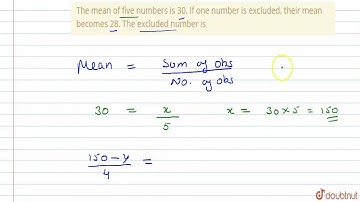 The mean of five numbers is 30. If one number is excluded, their mean
becomes 28. The excluded number is
Mean = Sum of obs / No. of obs
30 = x / 5 x = 30 × 5 = 150
150 - y / 4 =
doubtnut